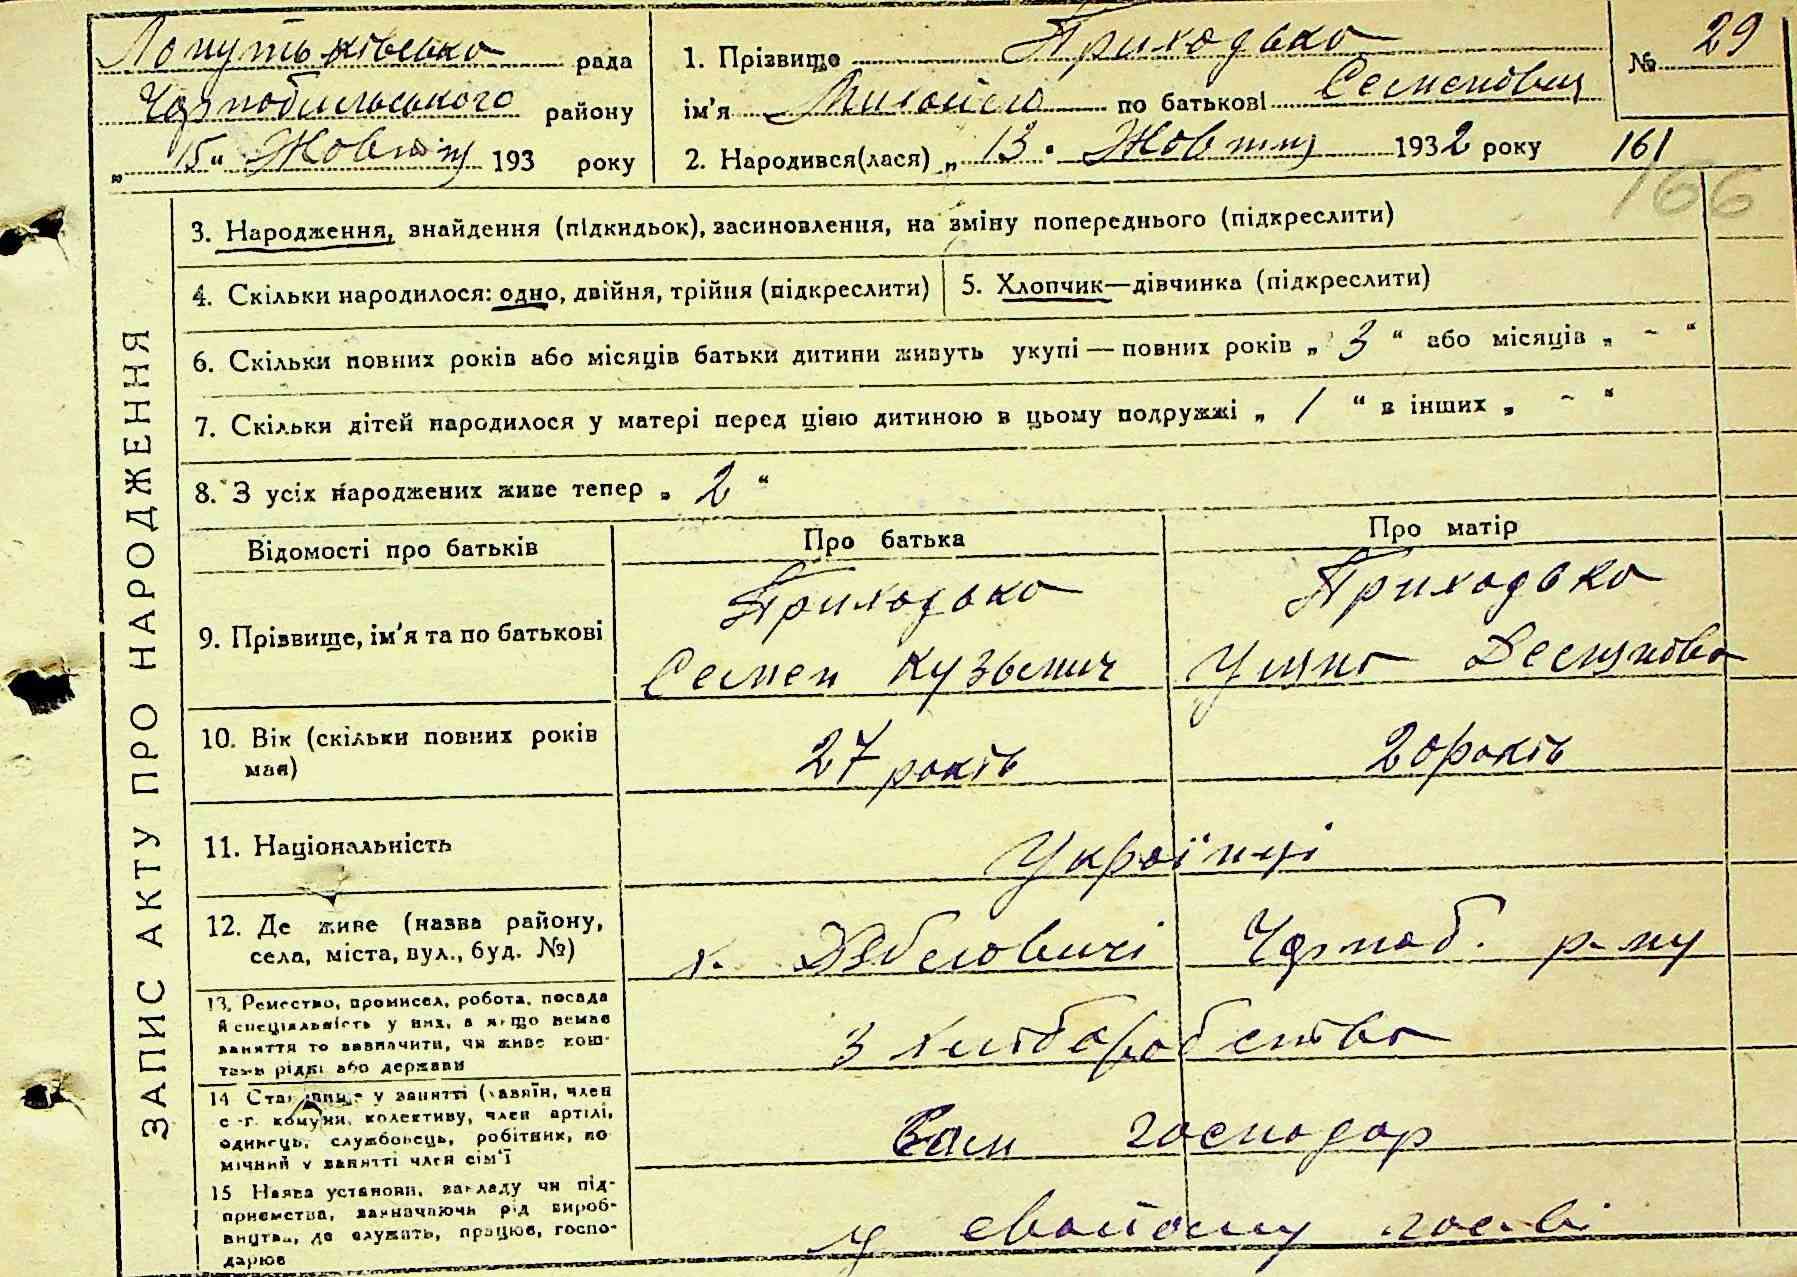 рада
Чорнобильського району
"15" Жовтня 193 року
1. Прізвище Приходько
ім'я Михайло по батькові Семенович
2. Народився(лася) "13. Жовтня 1932 року
№ 29
161
166
ЗАПИС АКТУ ПРО НАРОДЖЕННЯ
3. Народження, знайдення (підкидьок), засиновлення, на зміну попереднього (підкреслити)
4. Скільки народилося: одно, двійня, трійня (підкреслити)
5. Хлопчик—дівчинка (підкреслити)
6. Скільки повних років або місяців батьки дитини живуть укупі — повних років „ 3 “ або місяців „ ~ “
7. Скільки дітей народилося у матері перед цією дитиною в цьому подружжі „ 1 “ в інших „ ~ “
8. З усіх народжених живе тепер „ 2 “
Відомості про батьків
Про батька
Про матір
9. Прізвище, ім'я та по батькові
Приходько
Семен Кузьмич
Приходько
10. Вік (скільки повних років має)
27 років
20 років
11. Національність
Українці
12. Де живе (назва району,
села, міста, вул., буд. №)
х. Чорноб. р-ну
13. Ремество, промисел, робота, посада
й спеціяльність у них, а якщо немає
заняття то зазначити, чи живе кош-
том рідні або держави
з хліборобства
14 Становище у занятті (хазяїн, член
с.-г. комуни, колективу, член артілі,
одинець, службовець, робітник, по
мічний у занятті член сім'ї
Сам господар
15 Назва установи, закладу чи під-
приємства, зазначаючи рід вироб-
ництва, де служить, працює, госпо-
дарює
у свойому